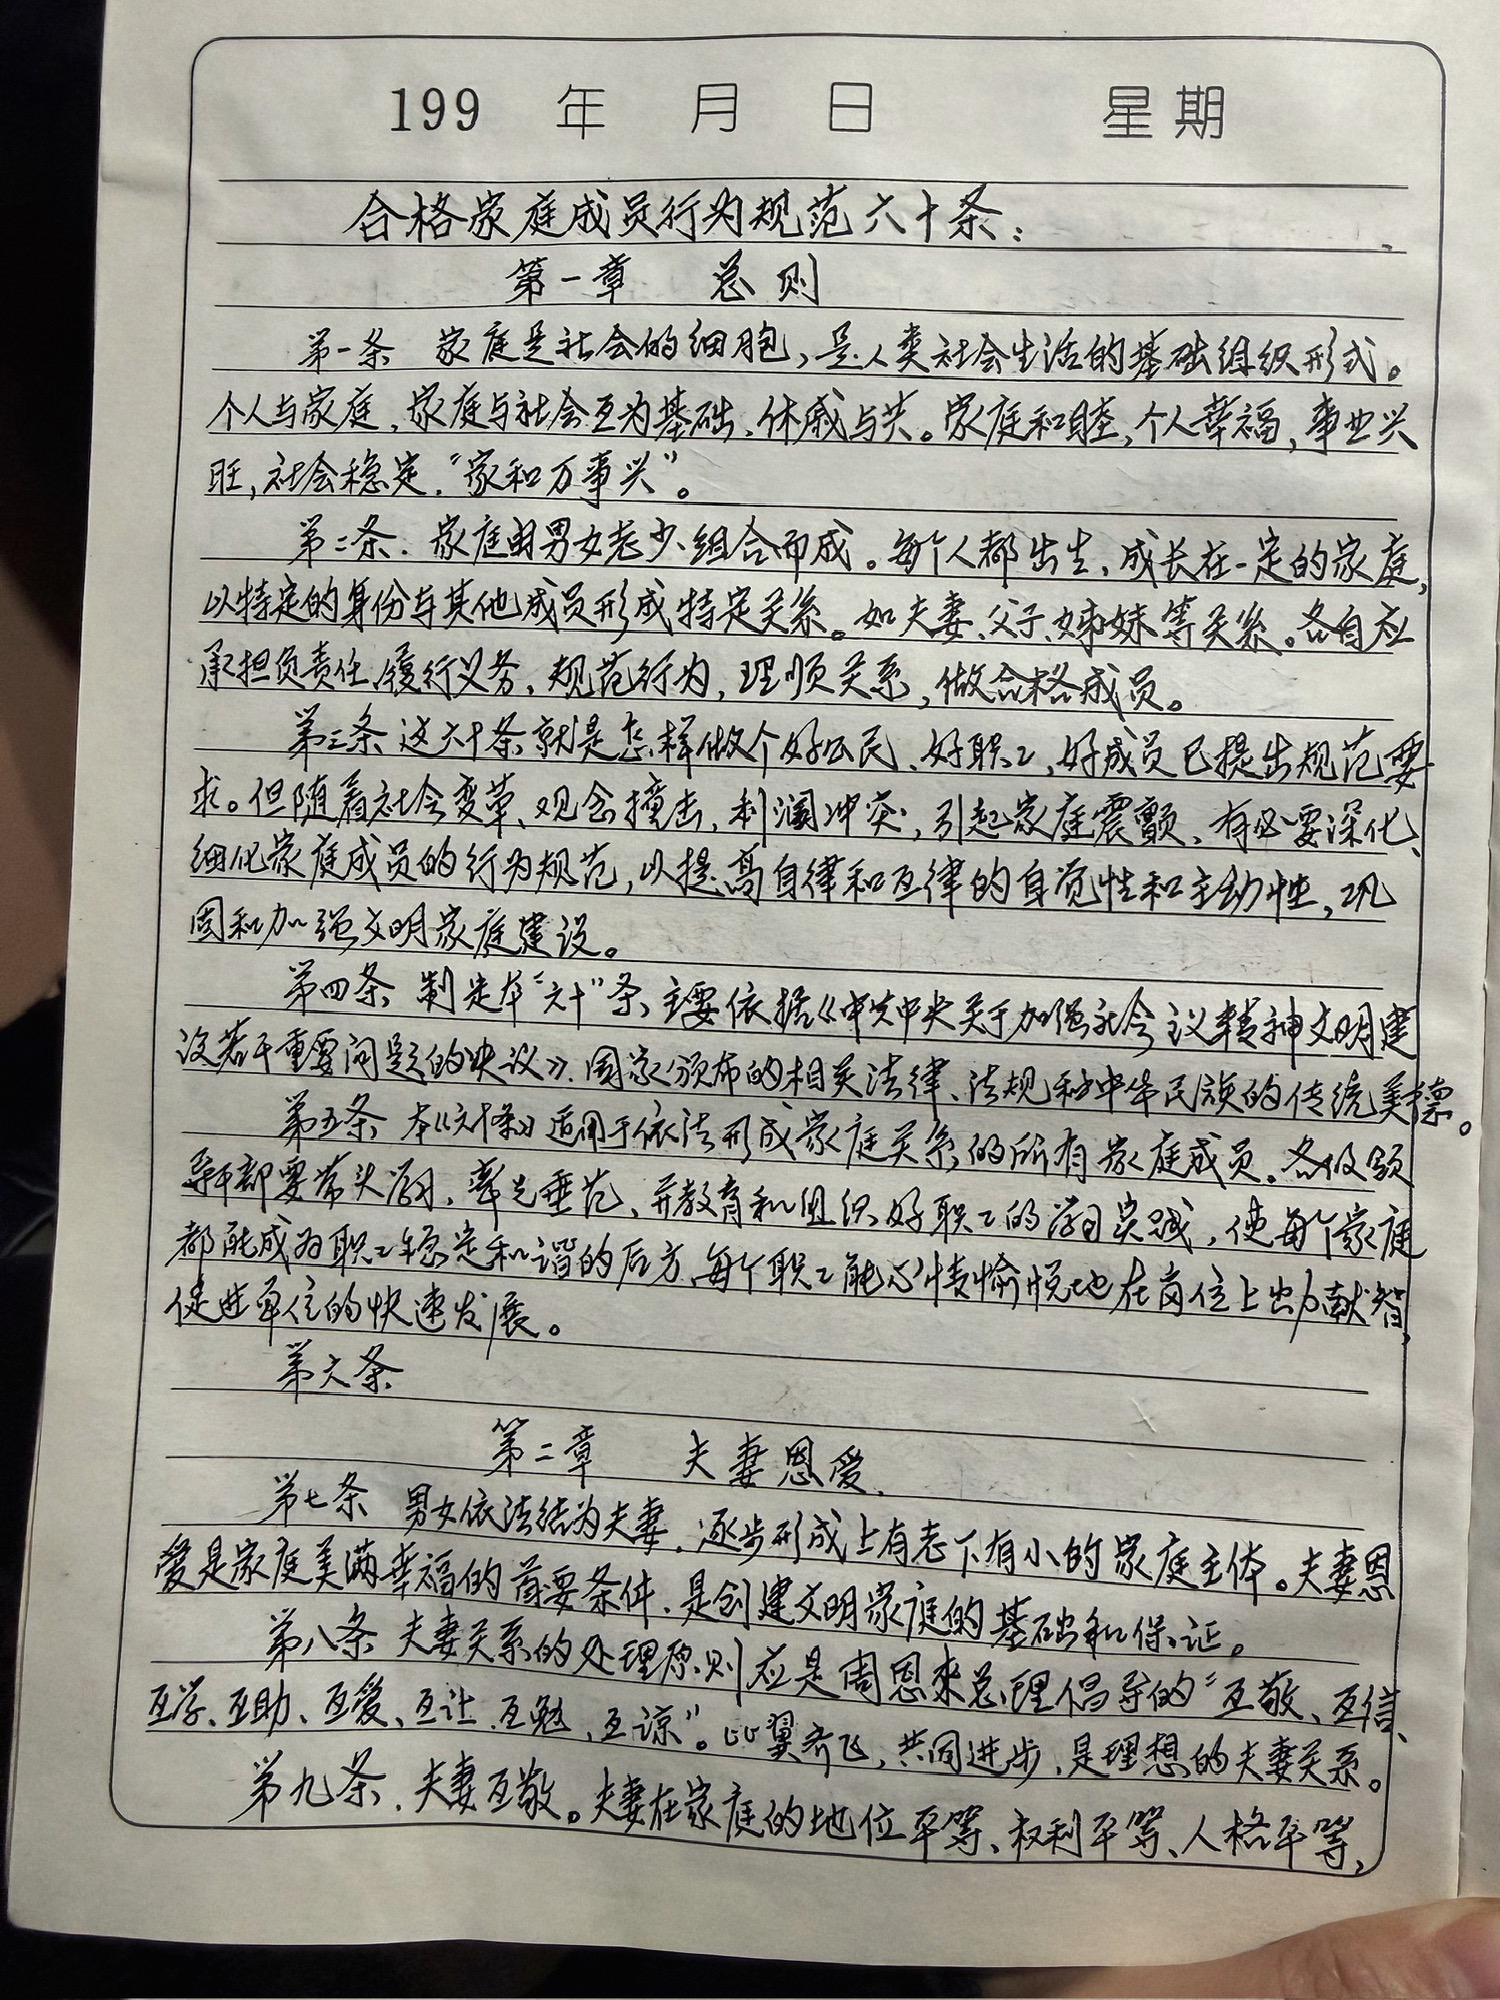 199 年 月 日 星期
合格家庭成员行为规范六十条：
第一章 总则
第一条 家庭是社会的细胞，是人类社会生活的基础组织形式。
个人与家庭，家庭与社会互为基础，休戚与共。家庭和睦，个人幸福，事业兴
旺，社会稳定，“家和万事兴”。
第二条. 家庭由男女老少组合而成。每个人都出生、成长在一定的家庭，
以特定的身份与其他成员形成特定关系。如夫妻、父子、姊妹等关系。各自应
承担负责任，履行义务，规范行为，理顺关系，做合格成员。
第三条 这六十条就是怎样做个好公民、好职工、好成员已提出规范要
求。但随着社会变革、观念撞击，利润冲突，引起家庭震颤，有必要深化、
细化家庭成员的行为规范，以提高自律和互律的自觉性和主动性，巩
固和加强文明家庭建设。
第四条 制定本“六十”条，主要依据《中共中央关于加强社会议精神文明建
设若干重要问题的决议》、国家颁布的相关法律、法规和中华民族的传统美德。
第五条 本《六十条》适用于依法形成家庭关系的所有家庭成员。各级领
导干部要带头学习，率先垂范，并教育和组织好职工的学习实践，使每个家庭
都能成为职工稳定和谐的后方，每个职工能心情愉悦地在岗位上出力献智，
促进单位的快速发展。
第六条
第二章 夫妻恩爱.
第七条 男女依法结为夫妻，逐步形成上有老下有小的家庭主体。夫妻恩
爱是家庭美满幸福的首要条件，是创建文明家庭的基础和保证。
第八条 夫妻关系的处理原则应是周恩来总理倡导的“互敬、互信、
互学、互助、互爱、互让、互勉、互谅”。比翼齐飞，共同进步，是理想的夫妻关系。
第九条. 夫妻互敬。夫妻在家庭的地位平等、权利平等、人格平等，